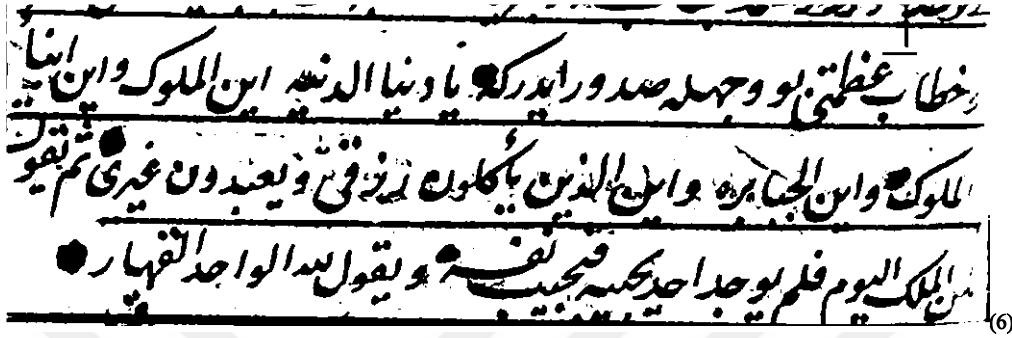 خطاب عظمتى بو وجهله صدور ايدركه يا دنيا الدنيه اين الملوك واين ابنا
الملوك واين الجبابره واين الذين يأكلون رزقى ويعبدون غيرى ثم يقول
لمن الملك اليوم فلم يوجد احد يجيبه فيجيب نفسه ويقول لله الواحد القهار
(6)